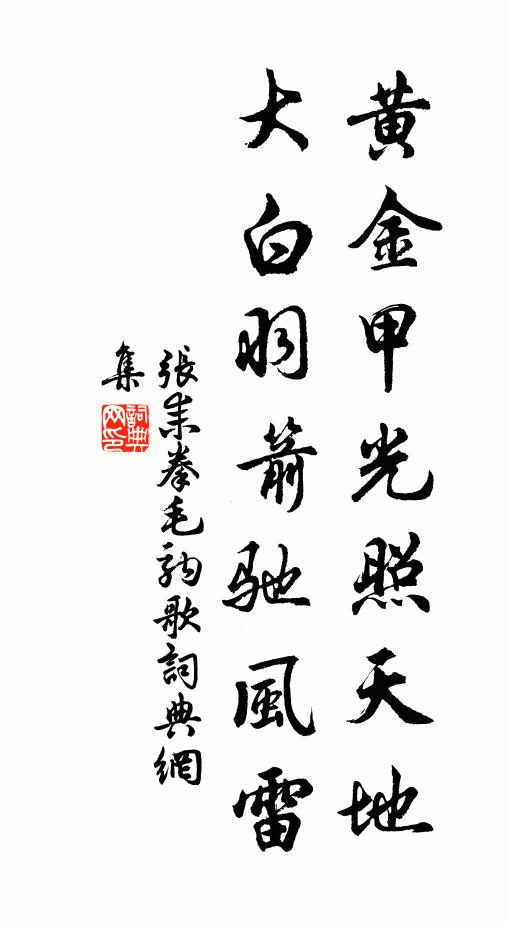 黄金甲光照天地
大白羽箭馳風雷
張耒拳毛䯄歌詞典網
集
詞典
网印